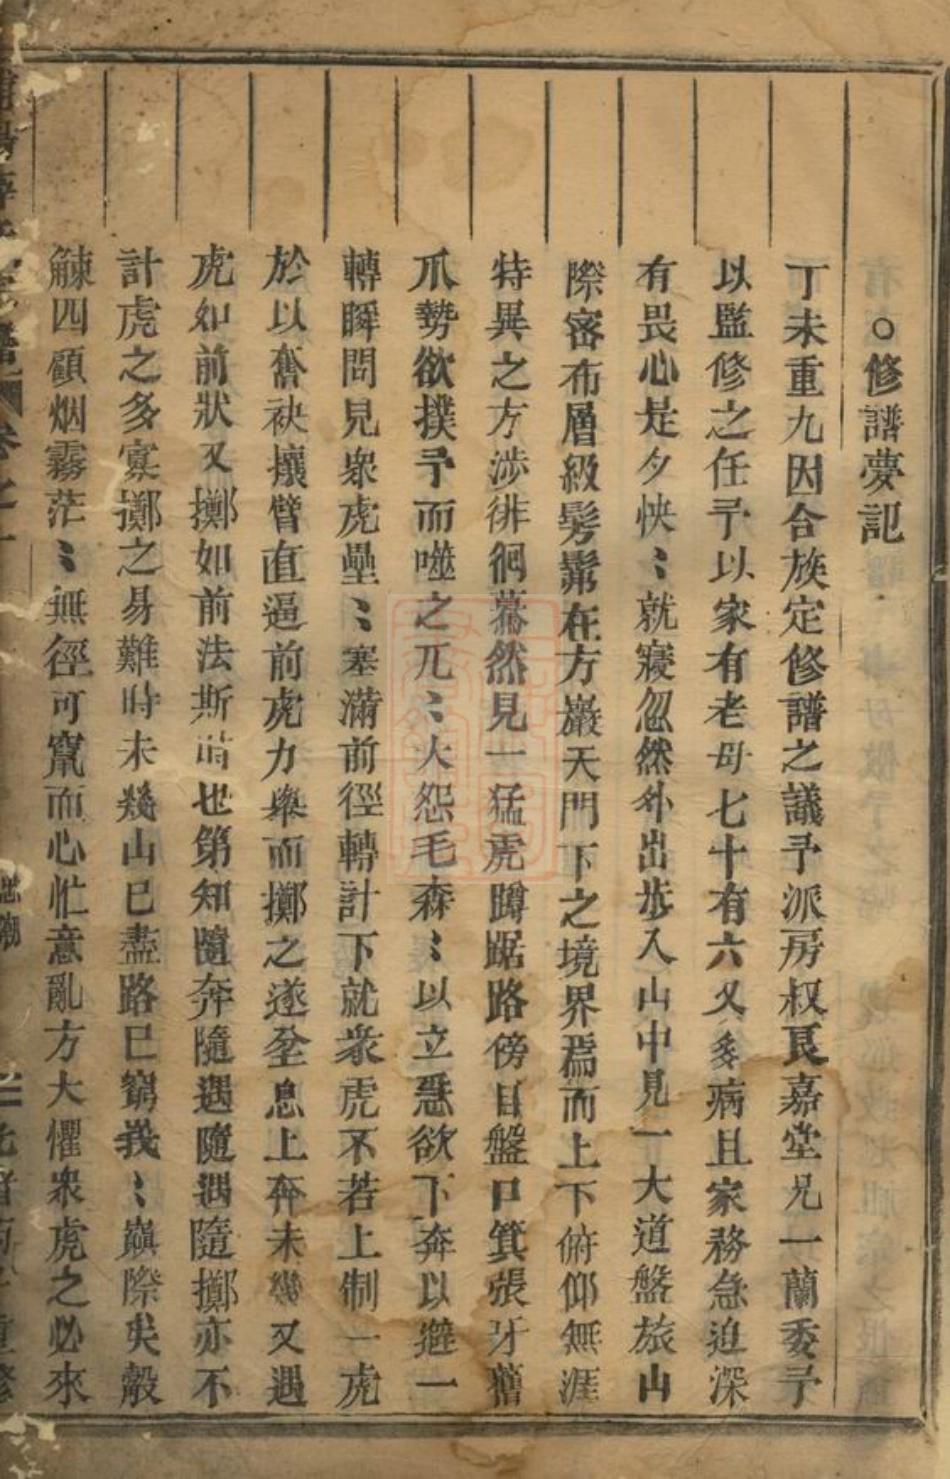 ○修譜夢記
丁未重九因合族定修譜之議予派房叔良嘉堂兄一蘭委予
以監修之任予以家有老母七十有六又多病且家務急迫深
有畏心是夕怏〻就寢忽然外出步入山中見一大道盤旅山
際密布層級髣髴在方巖天門下之境界焉而上下俯仰無涯
特異之方涉徘徊驀然見一猛虎蹲踞路傍目盤口箕張牙舊
爪勢欲撲予而噬之兀〻大怨毛森〻以立急欲下奔以避一
轉瞬間見衆虎壘〻塞滿前徑轉計下就衆虎不若上制一虎
於以奮袂攘臂直逼前虎力舉而擲之遂坌息上奔未幾又遇
虎如前狀又擲如前法斯時也第知隨奔隨遇隨遇隨擲亦不
計虎之多寡擲之易難時未幾山已盡路已窮我〻巔際矣觳
觫四顧烟霧茫〻無徑可竄而心忙意亂方大懼衆虎之必來
氏宗譜 卷之一
重修